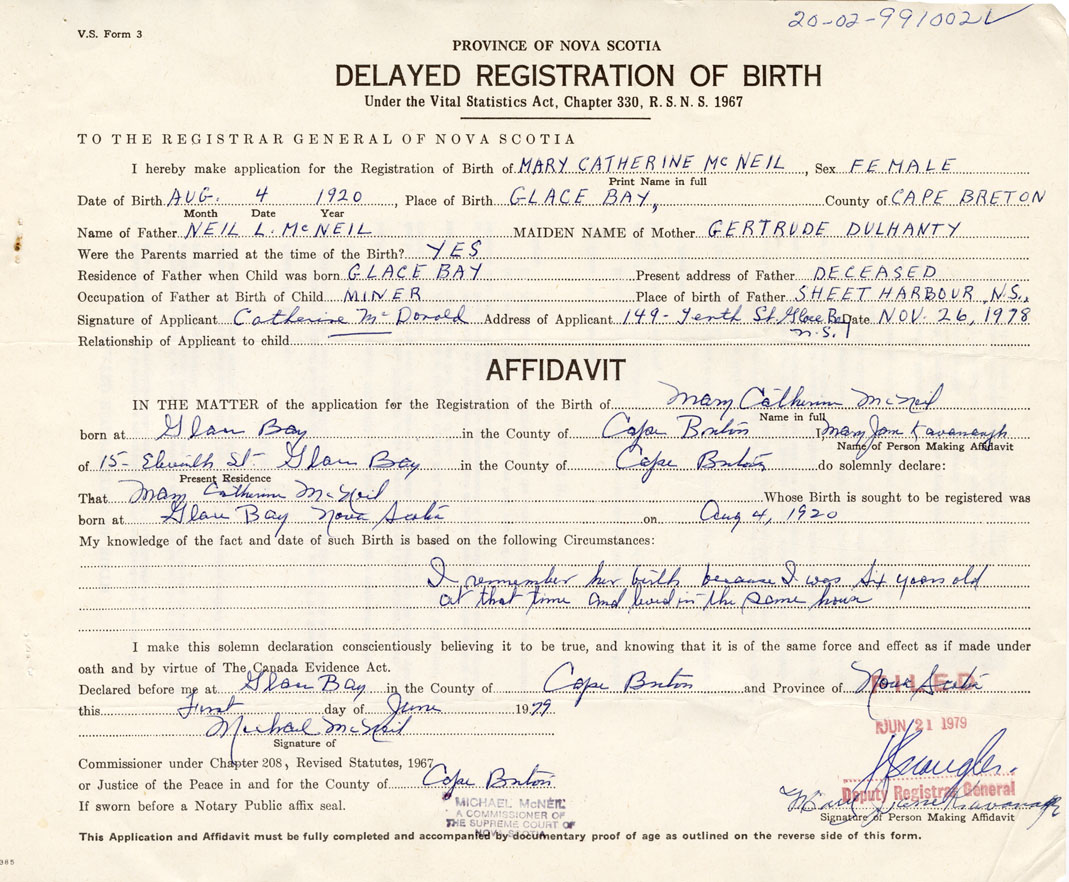 20-02-991002
V.S. Form 3
PROVINCE OF NOVA SCOTIA
DELAYED REGISTRATION OF BIRTH
Under the Vital Statistics Act, Chapter 330, R. S. N. S. 1967
TO THE REGISTRAR GENERAL OF NOVA SCOTIA
I hereby make application for the Registration of Birth of MARY CATHERINE MCNEIL, Sex FEMALE
Print Name in full
Date of Birth AUG. 4 1920, Place of Birth GLACE BAY, County of CAPE BRETON
Month Date Year
Name of Father NEIL L. MCNEIL MAIDEN NAME of Mother GERTRUDE DULHANTY
Were the Parents married at the time of the Birth? YES
Residence of Father when Child was born GLACE BAY Present address of Father DECEASED
Occupation of Father at Birth of Child MINER Place of birth of Father SHEET HARBOUR, N.S.
Signature of Applicant Catherine McDonald Address of Applicant 149-Tenth St. Glace Bay Date NOV. 26, 1978
N.S.
Relationship of Applicant to child
AFFIDAVIT
IN THE MATTER of the application for the Registration of the Birth of Mary Catherine McNeil
Name in full
born at Glace Bay in the County of Cape Breton I Mary Jane Kavanaugh
Name of Person Making Affidavit
of 15- Eleventh St- Glace Bay in the County of Cape Breton do solemnly declare:
Present Residence
That Mary Catherine McNeil Whose Birth is sought to be registered was
born at Glace Bay Nova Scotia on Aug 4, 1920
My knowledge of the fact and date of such Birth is based on the following Circumstances:
I remember her birth because I was six years old
at that time and lived in the same house
I make this solemn declaration conscientiously believing it to be true, and knowing that it is of the same force and effect as if made under
oath and by virtue of The Canada Evidence Act.
Declared before me at Glace Bay in the County of Cape Breton and Province of Nova Scotia
FILED
this First day of June 1979
JUN 21 1979
Michael McNeil
Signature of
Commissioner under Chapter 208, Revised Statutes, 1967
or Justice of the Peace in and for the County of Cape Breton
Deputy Registrar General
If sworn before a Notary Public affix seal.
MICHAEL McNEIL
A COMMISSIONER OF
THE SUPREME COURT OF
NOVA SCOTIA
Mary Jane Kavanaugh
Signature of Person Making Affidavit
This Application and Affidavit must be fully completed and accompanied by documentary proof of age as outlined on the reverse side of this form.
385